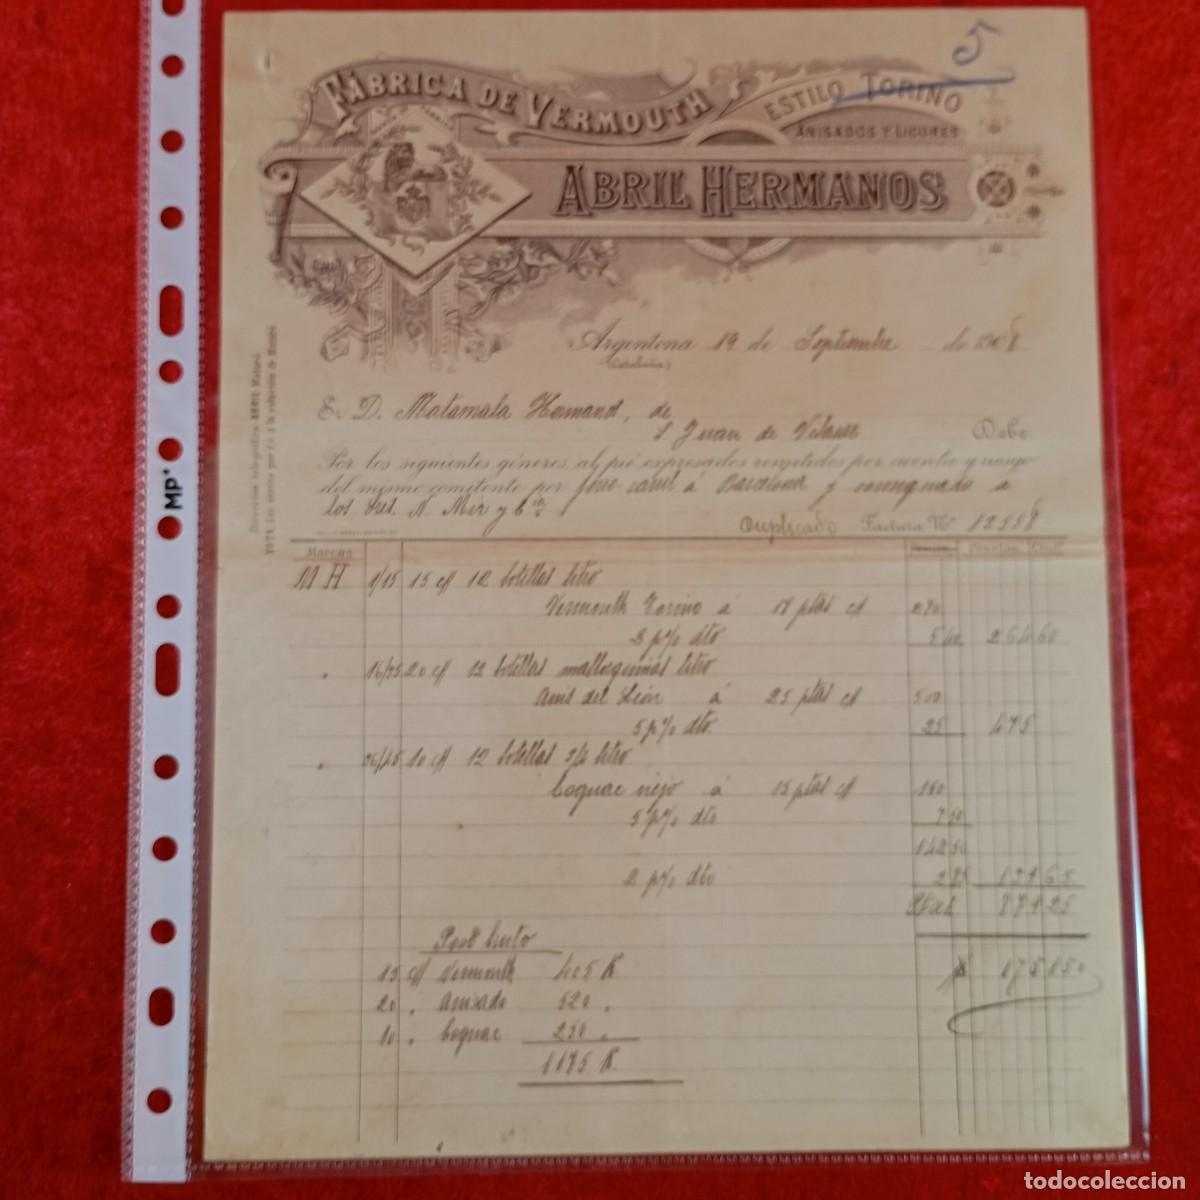 5
FÁBRICA DE VERMOUTH
ESTILO TORINO
ANISADOS Y LICORES
ABRIL HERMANOS
Argentona 19 de Septiembre de 1908
(Cataluña)
Sr. D. Matamala Hermanos, de
S Juan de Vilasar Debe
Por los siguientes géneros al pié expresados remitidos por cuenta y riesgo
del mismo comitente por ferro-carril á Barcelona y consignado a
los Sres. N. Mir y Cia
Duplicado Factura Nº 12558
Dirección telegráfica ABRIL Mataró
Marcas Pesetas Cents
M H 1/15 15 c/ 12 botellas litro
Vermouth Torino á 18 ptas c/ 270
2 p% dto 5 40 264 60
" 16/35 20 c/ 12 botellas mallorquinas litro
Anis del León á 25 ptas c/ 500
5 p% dto. 25 475
" 36/45 10 c/ 12 botellas 3/4 litro
Cognac viejo á 15 ptas c/ 150
5 p% dto 7 50
142 50
2 p% dto 2 85 139 65
Ptas 879 25
Peso bruto
15 c/ Vermouth 405 K. 1758 50
20 " Anisado 520 "
10 " Cognac 250 "
1175 K.
MP+
todocoleccion